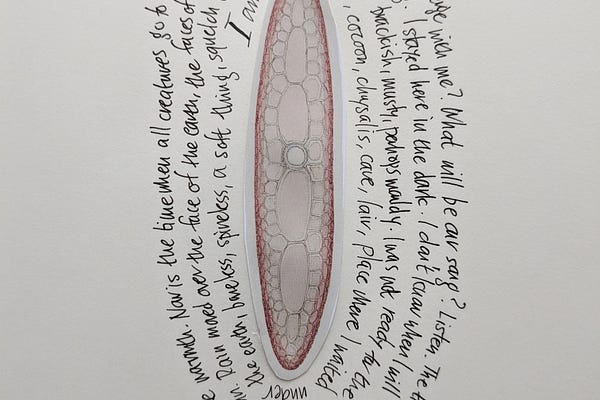 warmth. Now is the time when all creatures go to
Rain moved over the face of the earth, the faces of
the earth, boneless, spineless, a soft thing, squelch
I am
with me? What will be our song? Listen. The
I stayed here in the dark. I don't know when I will
brackish, musty, perhaps mouldy. I was not ready for the
, cocoon, chrysalis, cave, lair, place where I waited
under